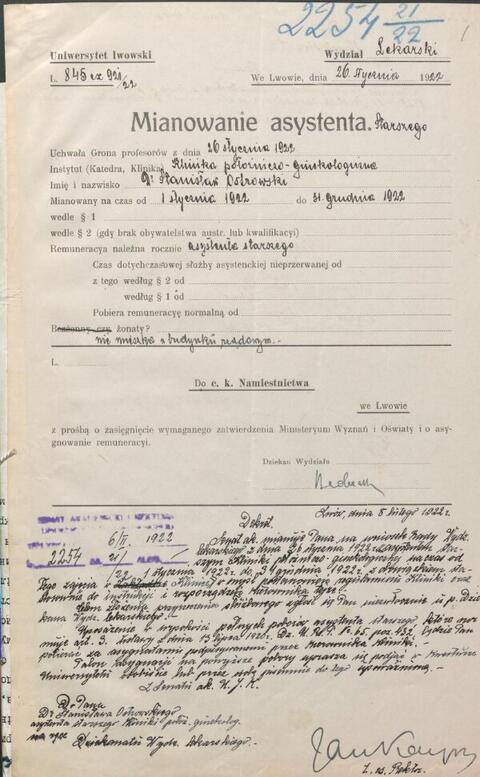 2254 21/22
1
Uniwersytet lwowski Wydział Lekarski
L. 845 ex 921/22 We Lwowie, dnia 26 stycznia 1922
Mianowanie asystenta. starszego
Uchwała Grona profesorów z dnia 26 stycznia 1922
Instytut (Katedra, Klinika) Klinika położniczo-ginekologiczna
Imię i nazwisko Dr Stanisław Ostrowski
Mianowany na czas od 1 stycznia 1922 do 31 grudnia 1922
wedle § 1
wedle § 2 (gdy brak obywatelstwa austr. lub kwalifikacyi)
Remuneracya należna rocznie asystenta starszego
Czas dotychczasowej służby asystenckiej nieprzerwanej od
z tego według § 2 od
według § 1 od
Pobiera remuneracyę normalną od
Bezżenny czy żonaty?
nie mieszka w budynku rządowym.-
L.
Do c. k. Namiestnictwa
we Lwowie
z prośbą o zasięgnięcie wymaganego zatwierdzenia Ministeryum Wyznań i Oświaty i o asy-
gnowanie remuneracyi.
Dziekan Wydziału
Lwów, dnia 8 lutego 1922 r.
Dekret.
6/II 1922
2254 21/
Senat ak. mianuje Pana na wniosek Rady Wydz.
lekarskiego z dnia 26 stycznia 1922 r. asystentem star-
szym Kliniki położn. ginekologicznej na czas od
1 stycznia 1922 r. do 31 grudnia 1922 r. z obowiązkiem
Kliniki oraz
stosowania do instrukcji i rozporządzeń Kierownika tejże.
Celem złożenia przyrzeczenia służbowego zgłosi się Pan niezwłocznie u p. Dzie-
kana Wydz. lekarskiego.
asystenta starszego
3. ustawy z dnia 13 lipca 1920 r. Dz. U. R. P. N. 65 poz. 432 będzie Pan
pobierał za asygnatami podpisywanymi przez Kierownika Kliniki.
Uniwersytetu osobiście lub przez osobę pisemnie do tego upoważnioną.
Z Senatu ak. U. J. K.
Do Pana
Dr Stanisława Ostrowskiego
asystenta starszego Kliniki położ. ginekolog.
na ręce
Dziekanatu Wydz. lekarskiego.
Z. w. Rektor.